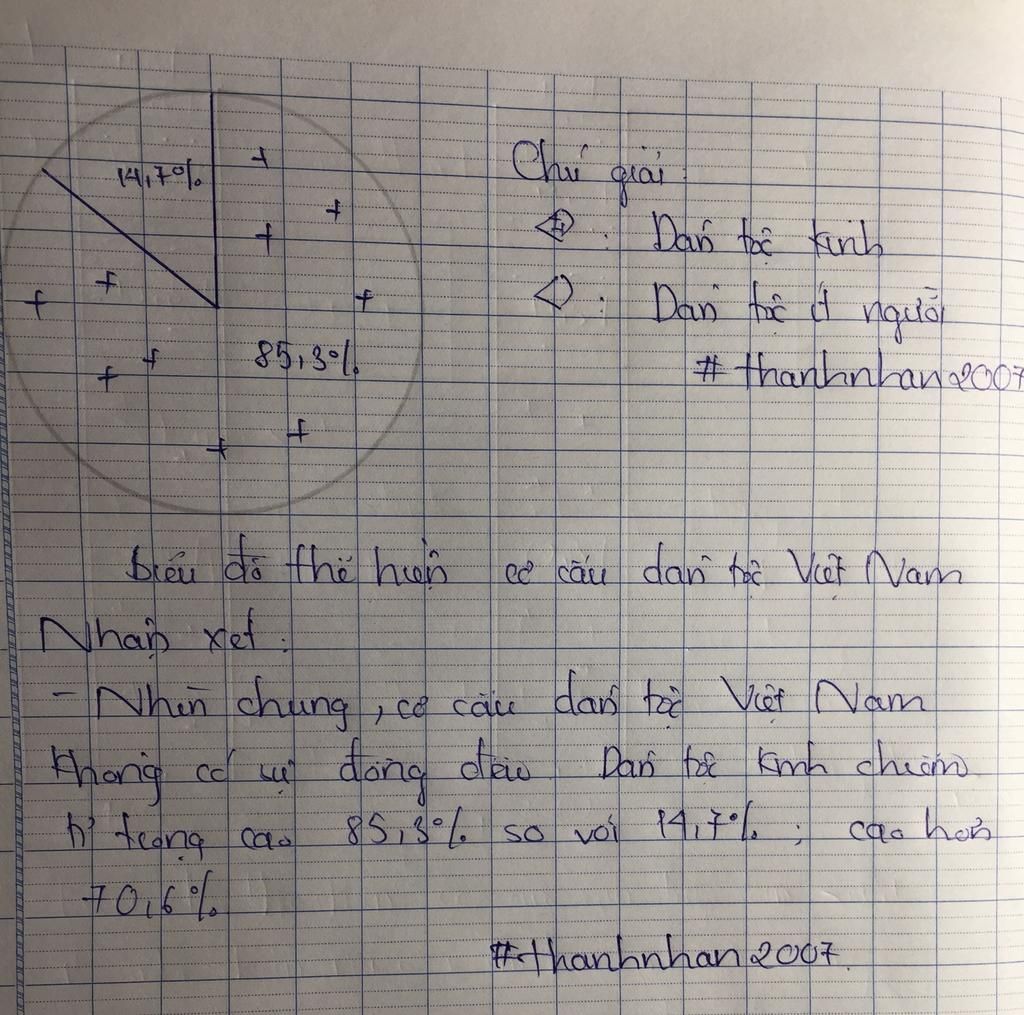 14,7%
85,3%
Chú giải:
+ : Dân tộc kinh
: Dân tộc ít người
#thanhnhan2007
biểu đồ thể hiện cơ cấu dân tộc Việt Nam
Nhận xét:
- Nhìn chung, cơ cấu dân tộc Việt Nam
không có sự đồng đều Dân tộc Kinh chiếm
tỉ trọng cao 85,3% so với 14,7%; cao hơn
70,6%
#thanhnhan2007